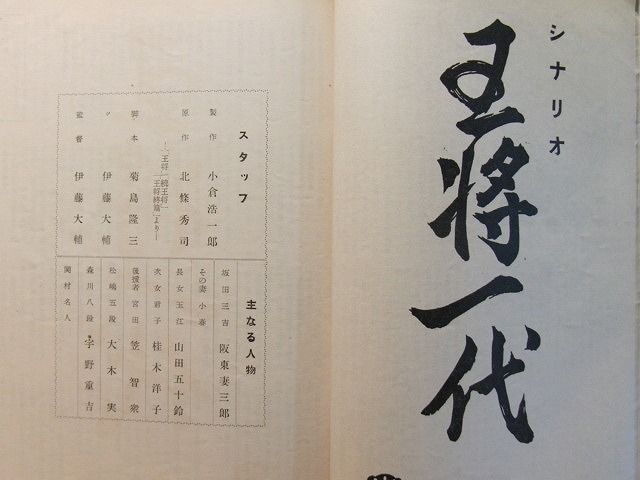 シナリオ
王将一代
スタッフ
製作 小倉浩一郎
原作 北條秀司
―「王将」「続王将」
「王将終篇」より―
脚本 菊島隆三
〃 伊藤大輔
監督 伊藤大輔
主なる人物
坂田三吉 阪東妻三郎
その妻小春
長女玉江 山田五十鈴
次女君子 桂木洋子
後援者宮田 笠智衆
松嶋五段 大木実
森川八段 宇野重吉
関村名人